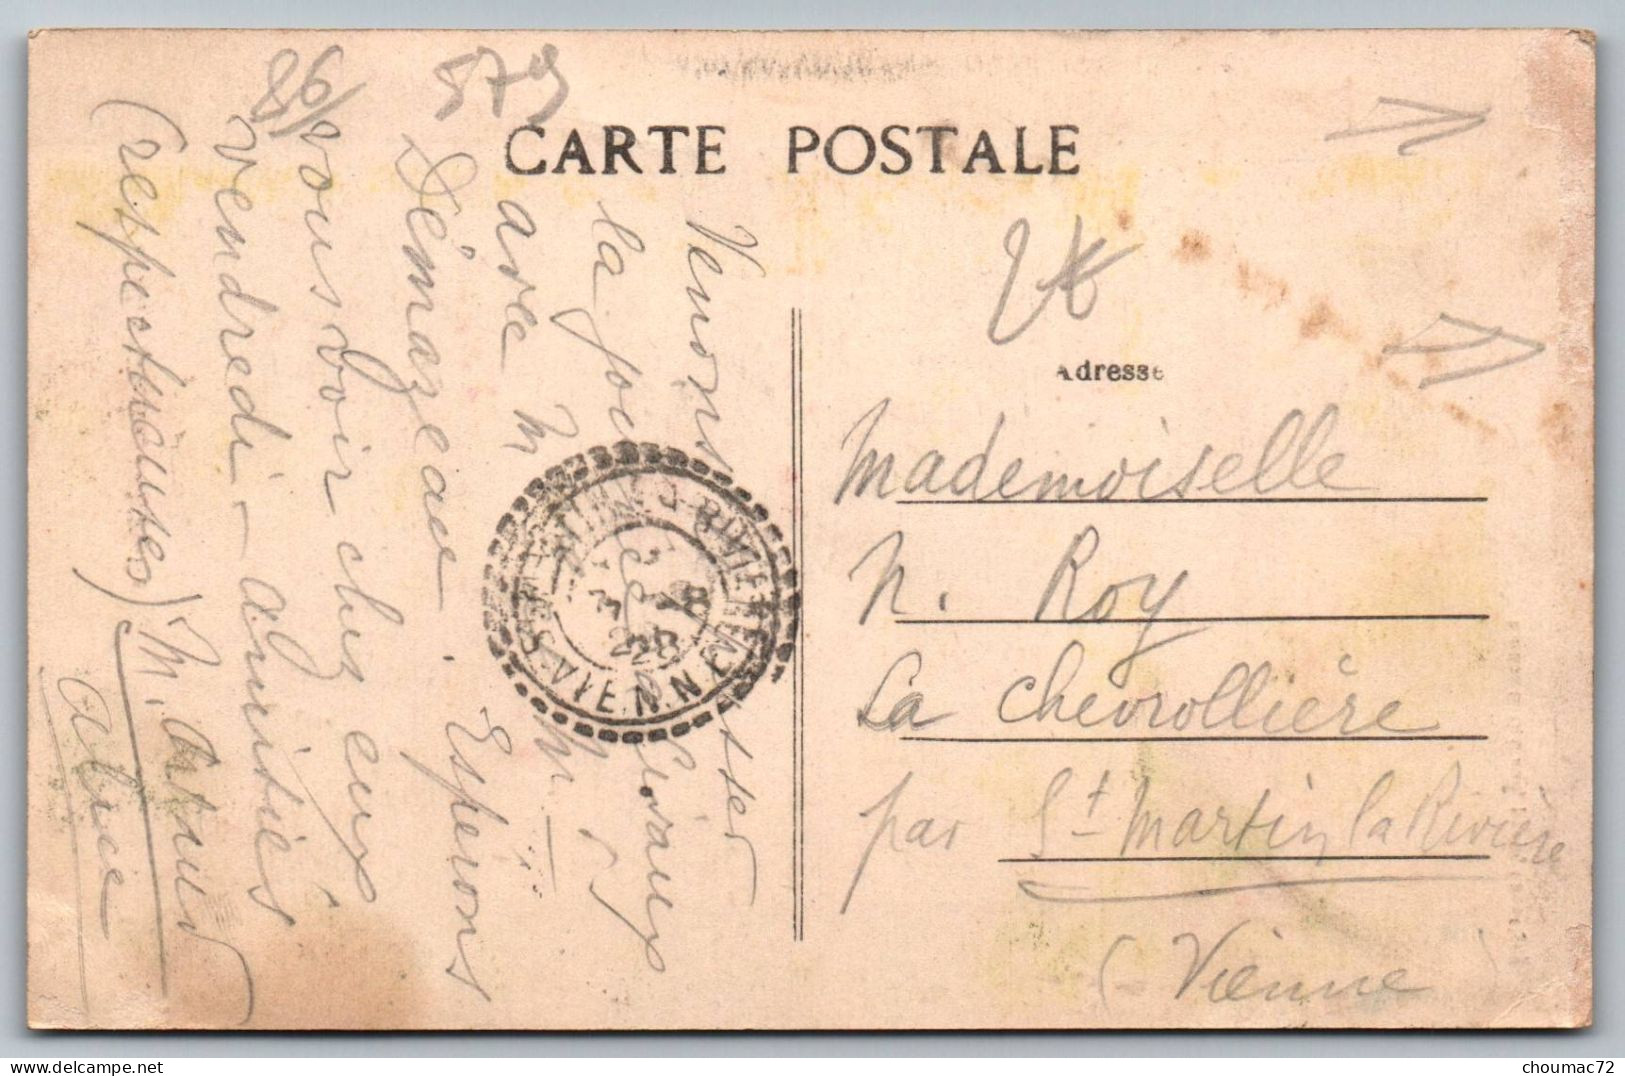 579
86/
CARTE POSTALE
Venons
la
avec M
Démazeau. Espérons
vous voir chez eux
vendredi - amitiés
(respectueuses) M.
Alice
Adresse
Mademoiselle
N. Roy
La Chevrollière
par St Martin la Rivière
(Vienne
VIENNE
choumac72